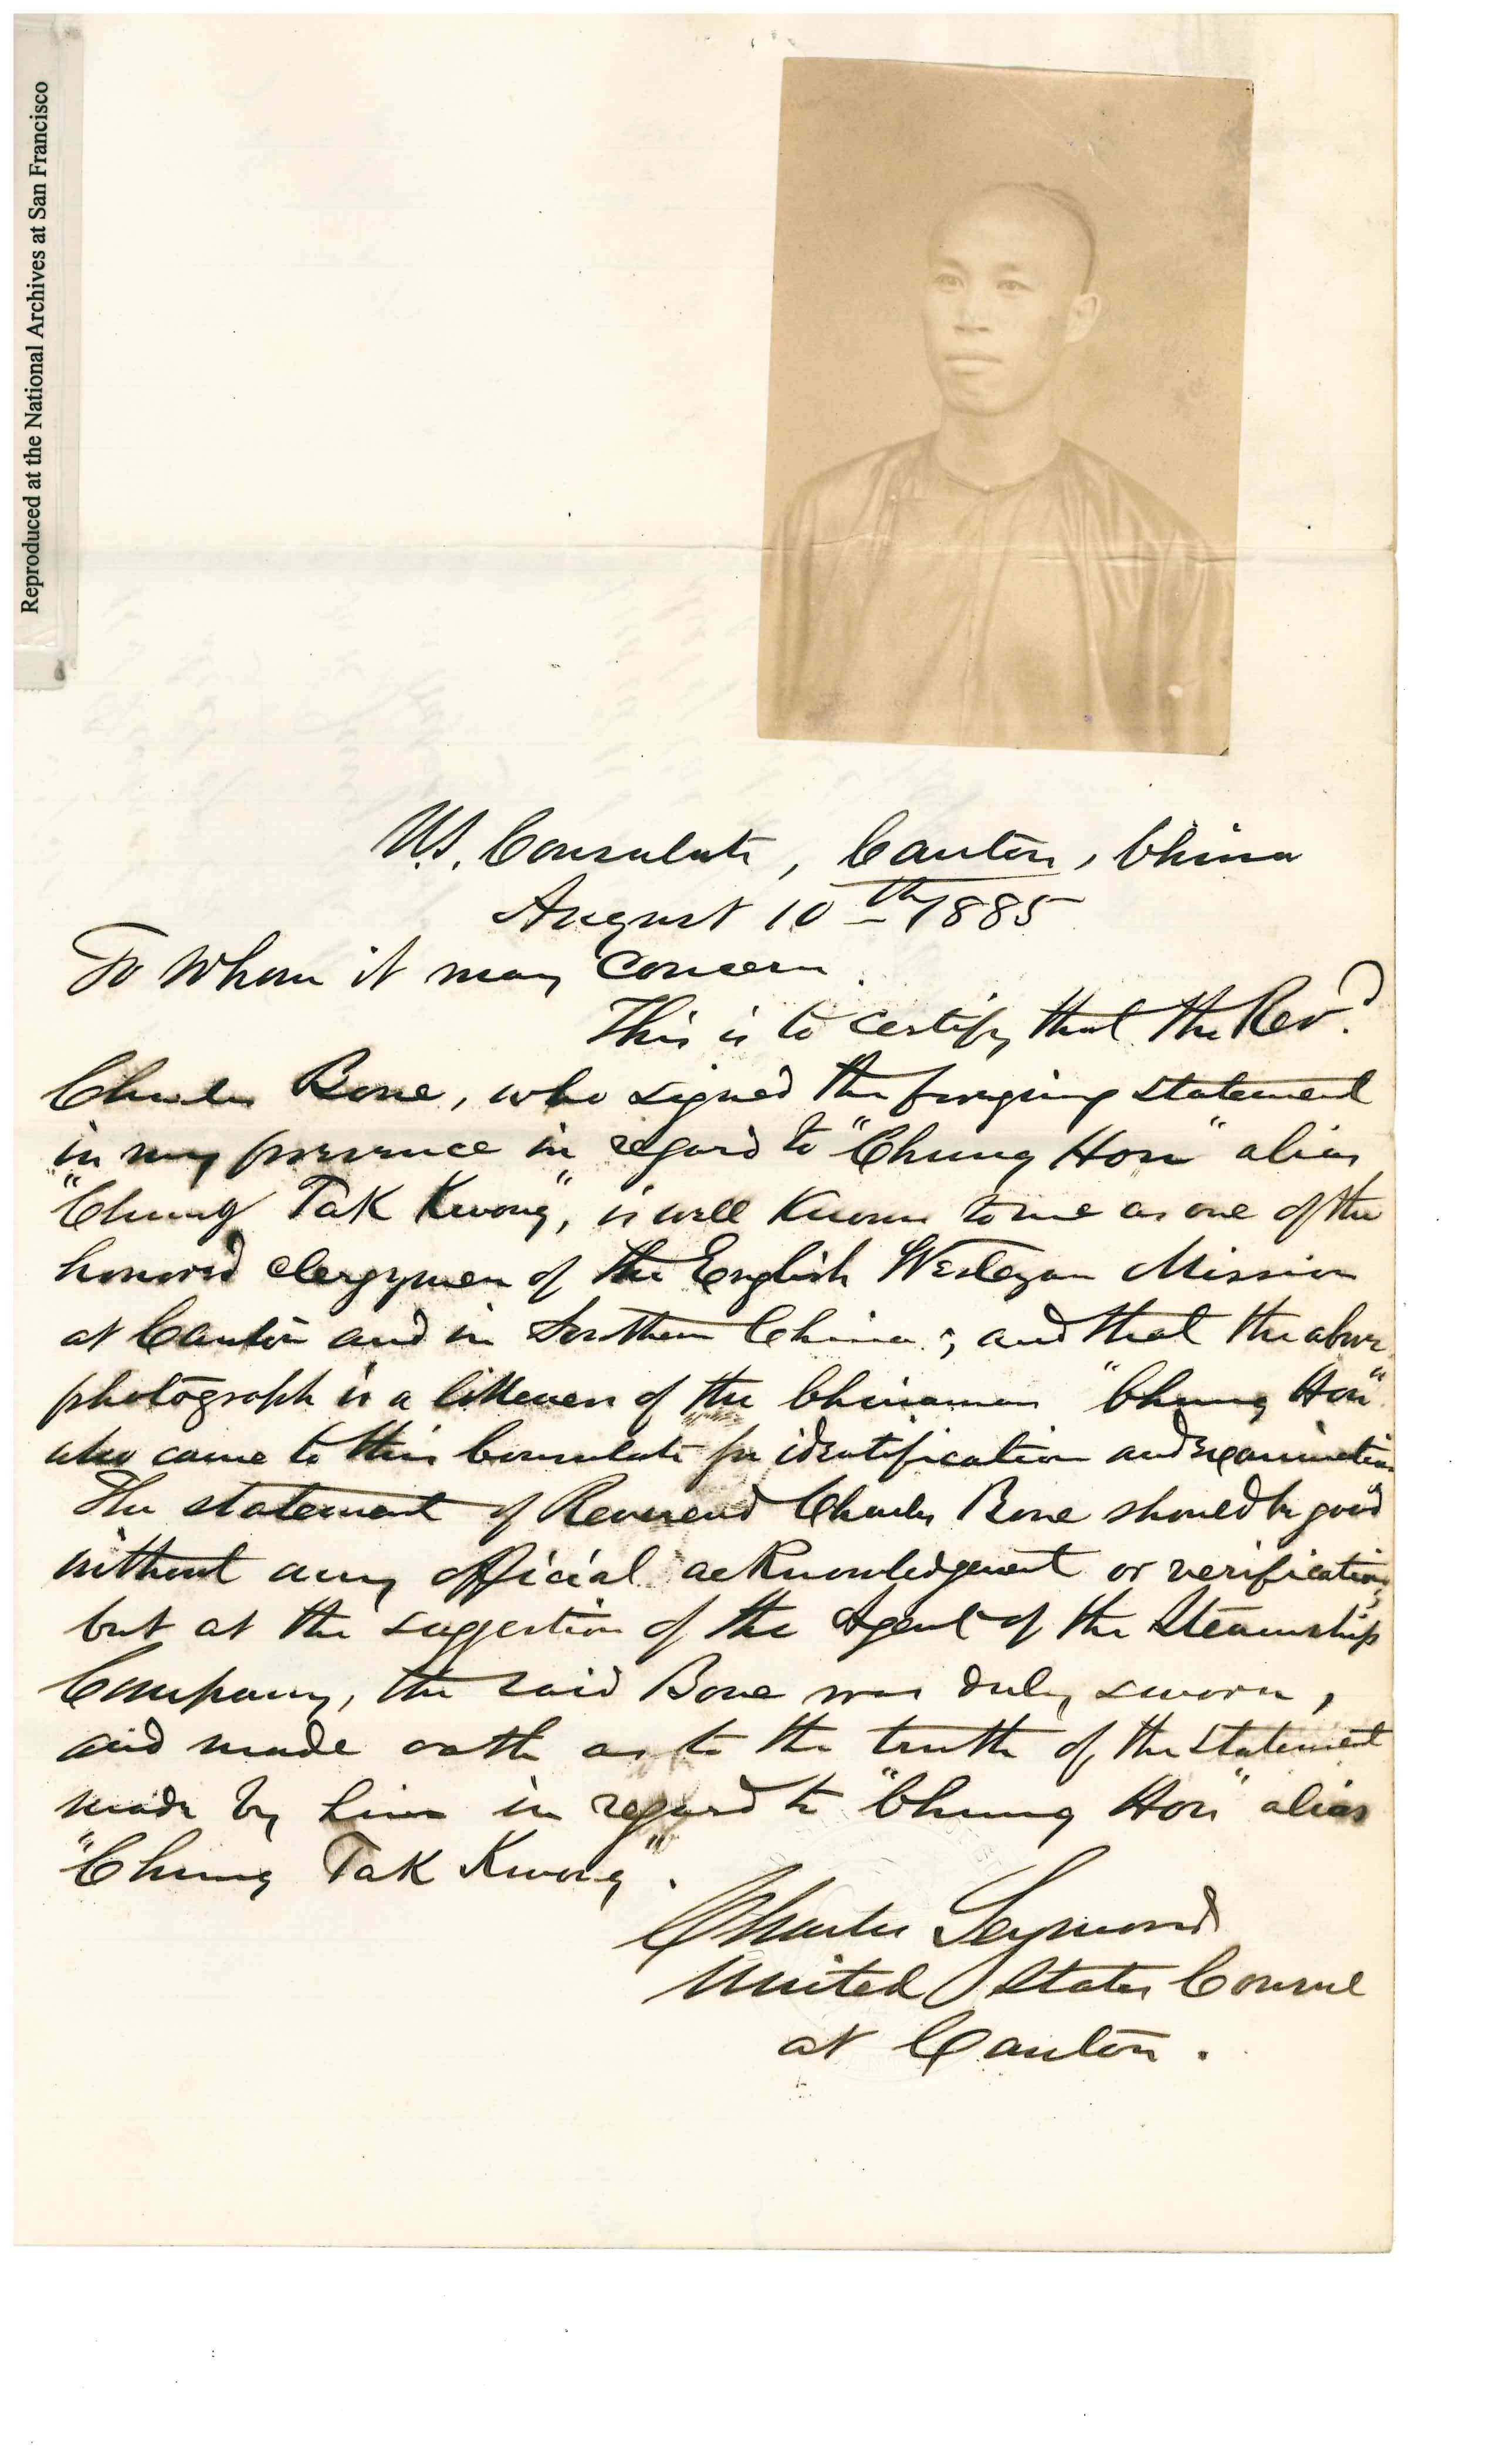 Reproduced at the National Archives at San Francisco
U.S. Consulate, Canton, China
August 10th 1885
To Whom it may Concern
This is to certify that the Revd.
Charles Bone, who signed the foregoing statement
in my presence in regard to "Chung Hon" alias
"Chung Tak Kwong", is well Known to me as one of the
honored clergymen of the English Wesleyan Mission
at Canton and in Southern China; and that the above
photograph is a likeness of the Chinaman "Chung Hon"
who came to this Consulate for identification and examination
The statement of Reverend Charles Bone should be good
without any official acknowledgement or verification,
but at the suggestion of the Agent of the Steamship
Company, the said Bone was duly sworn,
and made oath as to the truth of the statement
made by him in regard to "Chung Hon" alias
"Chung Tak Kwong".
Charles Seymour
United States Consul
at Canton.